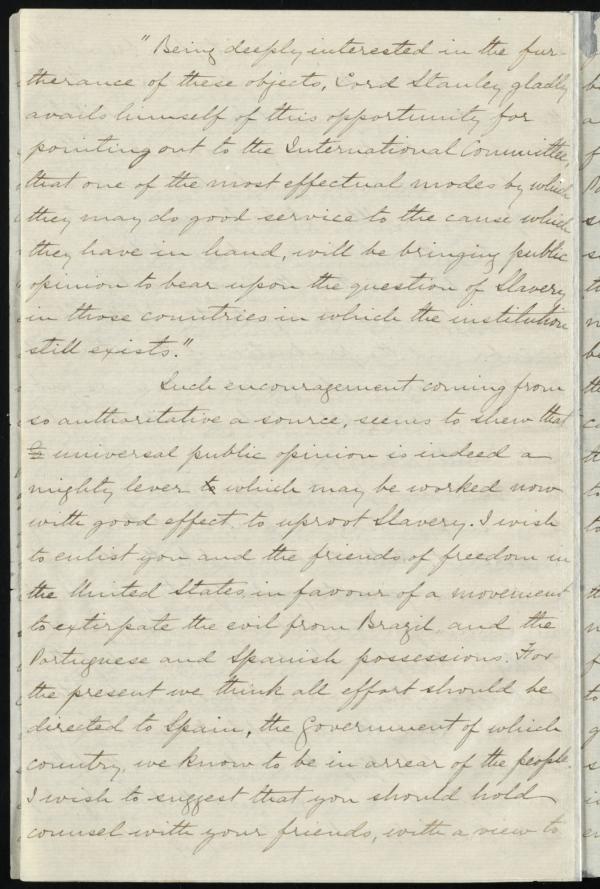 "Being deeply interested in the fur-
therance of these objects, Lord Stanley gladly
avails himself of this opportunity for
pointing out to the International Committee,
that one of the most effectual modes by which
they may do good service to the cause which
they have in hand, will be bringing public
opinion to bear upon the question of Slavery
in those countries in which the institution
still exists."
Such encouragement coming from
so authoritative a source, seems to shew that
universal public opinion is indeed a
mighty lever which may be worked now
with good effect to uproot Slavery. I wish
to enlist you and the friends of freedom in
the United States in favour of a movement
to extirpate the evil from Brazil and the
Portuguese and Spanish possessions. For
the present we think all effort should be
directed to Spain, the Government of which
country, we know to be in arrear of the people.
I wish to suggest that you should hold
counsel with your friends, with a view to